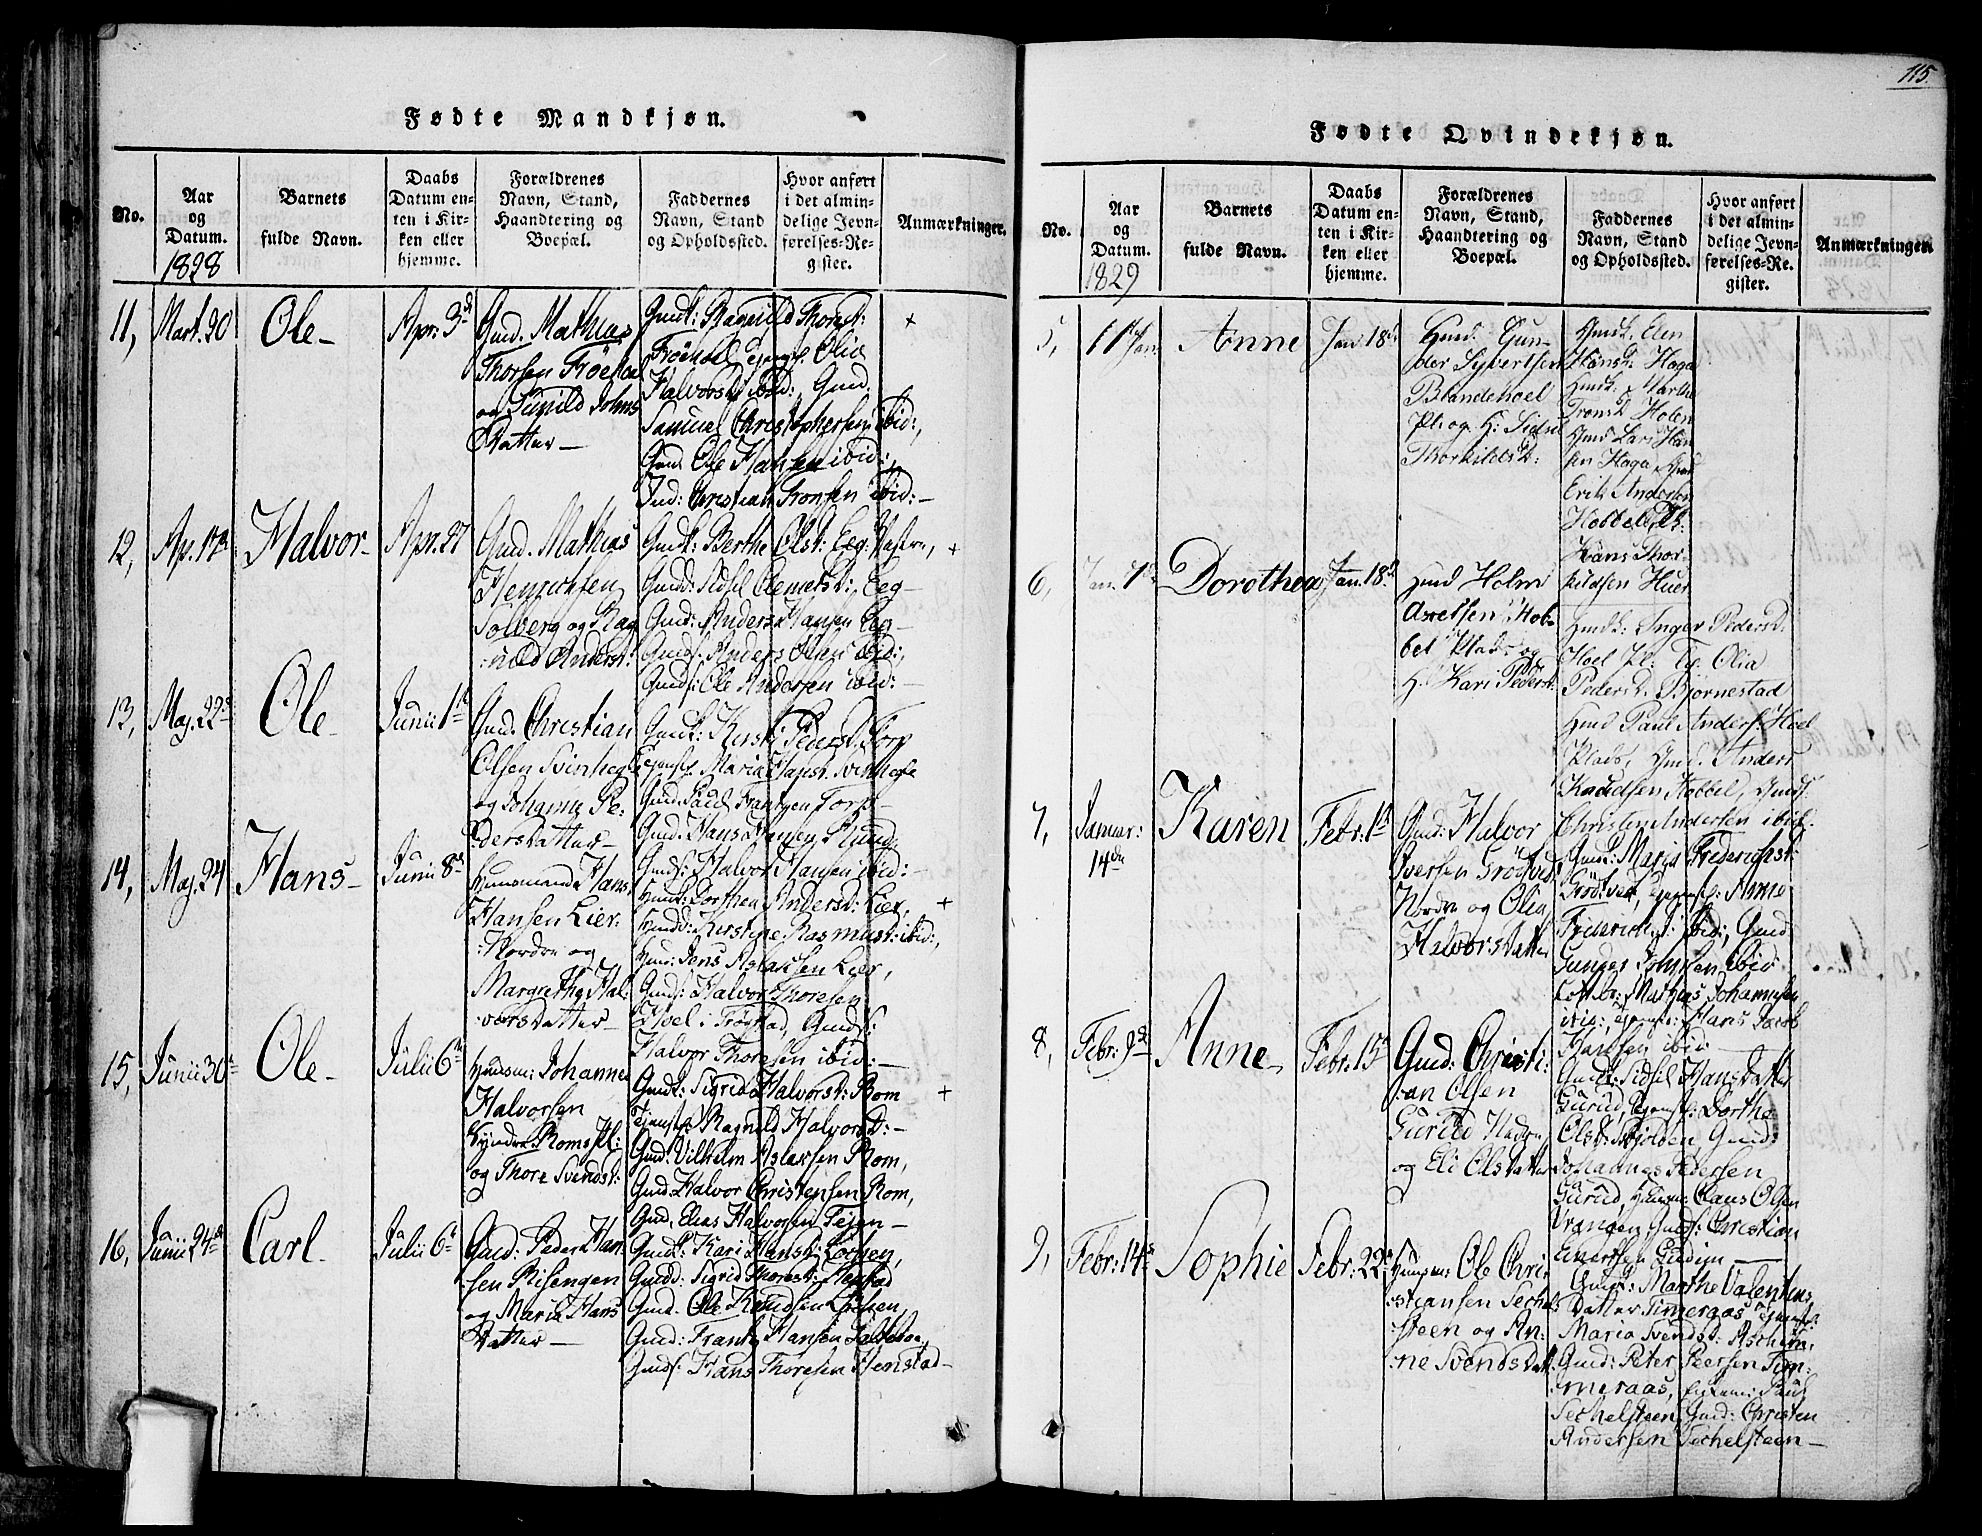 115.
Fødte Mandkjøn.
No.
Aar
og
Datum.
1828
Barnets
fulde Navn.
Daabs
Datum en-
ten i Kir-
ken eller
hjemme.
Forældrenes
Navn, Stand,
Haandtering og
Boepæl.
Faddernes
Navn, Stand
og Opholdssted.
Hvor anført
i det almin-
delige Jevn-
førelses-Re-
gister.
Anmærkninger.
11, Mart. 30
Ole-
Apr: 3d
Gmd. Mathias
Thorsen Fröehoel
og Gunild Johns
Datter-
Gmdk: Ragnild Thorest:
Fröehoel Olia
Halvorsd: ibid: Gmd.
Samuel Christophersen ibid:,
Gmd. Ole Hansen ibid:,
Ind: Christian Tronsen ibid:-
+
12, Ap. 17de
Halvor-
Apr. 27
Gmd. Mathias
Henrichsen
Solberg og Rag
:nild Anderst:
Gmdk: Berthe Olst: Eeg
Gmdd: Sidsil Clemetst: Eeg-
Gmd: Anders Hansen Eeg-
Gmds: Anders Olsen ibid:,
Gmds: Ole Andersen ibid:-
+
13, Maj. 22d
Ole-
Junii 1te
Gmd. Christian
Olsen Svinhegle
og Johanne Pe-
dersdatter-
Gmdk: Kirsti Pedersd. Torp
Maria Hanst. Svinhegle
Gmd. Paul Frantzen Torp-
Gmd. Hans Hansen
Gmds: Halvor Hansen ibid:-
14, Maj. 24
Hans-
Junii 8de
Huusmand Hans
Hansen Lier:
:Nordre og
Margrethe Hal:
:vorsdatter-
Hmdk: Dorthea Anderst: Lier,
Hmdd: Kirstine Rasmust: ibid:,
Hmd: Jens Aslaksen Lier,
Gmds: Halvor Thoresen
Hoel i Trögstad, Gmds:
Halvor Thoresen ibid:-
+
15, Junii 30te
Ole-
Julii 6te
Huusm: Johannes
Halvorsen
Romspl:
og Thore Svendst:
Gmdk: Sigrid Halvorst: Rom
Tjenstp: Ragnild Halvors D:-
Gmd: Vilhelm Aslaksen Rom,
Gmd: Halvor Christensen Rom,
Gmd. Elias Halvorsen
+
16, Junii 24de
Carl-
Julii 6te
Gmd: Peder Han-
sen Risengen
og Maria Hans
Datter-
Gmdk: Kari Hanst: Löchen,
Gmdd: Sigrid Thorest: Henstad
Gmd. Ole Knudsen Löchen,
Gmd: Frantz Hansen
Gmds: Hans Thoresen Henstad-
Fødte Qvindekjøn.
No.
Aar
og
Datum.
1829
Barnets
fulde Navn.
Daabs
Datum en-
ten i Kir-
ken eller
hjemme.
Forældrenes
Navn, Stand,
Haandtering og
Boepæl.
Faddernes
Navn, Stand
og Opholdssted.
Hvor anført
i det almin-
delige Jevn-
førelses-Re-
gister.
Anmærkninger
5, Jan:
Anne
Jan 18de
Hmd: Gun-
der Syvertsen
Blandehoel
Pl: og H: Sidsil
Thorkildsd:
Hmdk: Elen
Hansd: Haga
Hmdk: Marthe
Tronsd Holen
Gmd Lars Han
sen Haga
Erik Andersen
Hobbel
Hans Thor-
kildsen Huer
6, Jan. 1te
Dorothea
Jan. 18de
Hmd Holm
Axelsen Hob-
bel Plads og
H: Kari Pederst:
Hmdk: Inger Pedersd.
Hoel Pl: Olia
Pedersd: Björnestad
Hmd Paul Anders: Hoel
Plads, Gmd. Anders
Knudsen Hobbel,
Christen Andersen ibid.
7, Januar:
14de
Karen
Febr: 1te
Gmd: Halvor
Iversen Grödved
Nordre og Olia
Halvorsdatter
Gmdk: Maria Frederichst:
Grötved, Anne
Friderichst: ibid:, Gmd.
Gunder Johnsen ibid.
Mathias Johannesen
ibid:, Hans Jacob
Hansen ibid-
8, Febr: 9de
Anne-
Febr: 15de
Gmd: Christi:
:an Olsen
Gurud Nedre,
og Eli Olsdatter
Gmdk: Sidsil Hansdatter
Gurud, Tjenstp: Dorthe
Olst: Skjolden, Gmd:
Johannes Pedersen
Gurud, Claus Olsen
Vrangen, Gmds: Christian
Einersen Gudim-
9, Febr: 14de
Sophie
Febr: 22de
Huusm: Ole Chri-
:stiansen Sechel-
steen og An:
:ne Svendsdatt
Gmdk: Marthe Valentins
Datter Timeraas,
Maria Svendst: Aschim,
Gmd: Peter Peersen Tim-
meraas, Paul
Sechelsteen, Gmd: Christen
Andersen Sechelsteen-